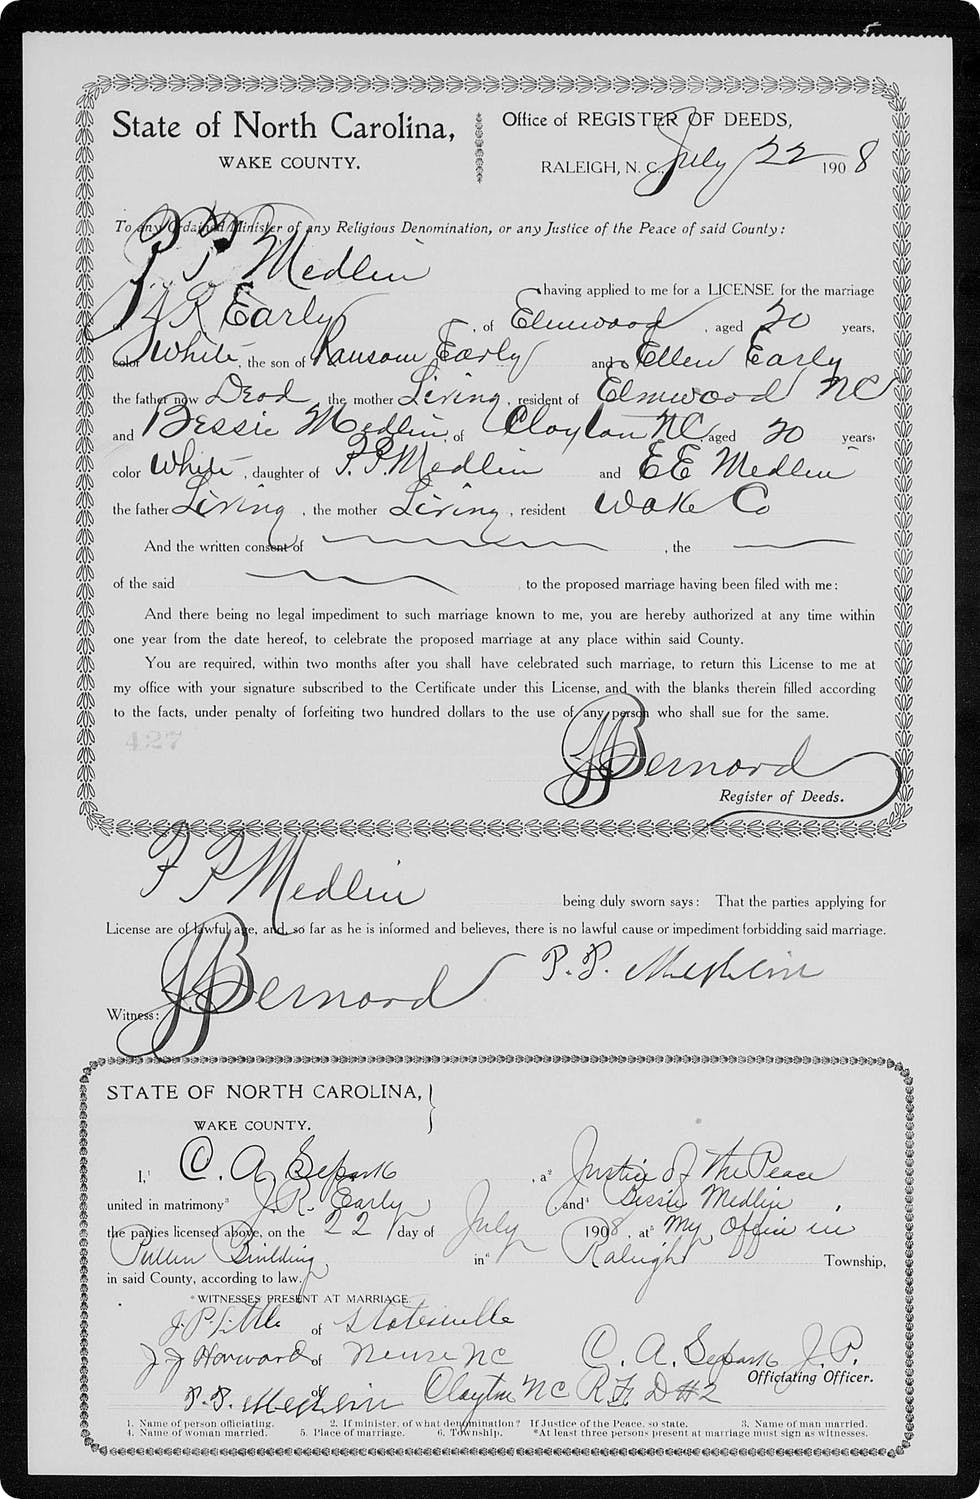 State of North Carolina,
WAKE COUNTY.
Office of REGISTER OF DEEDS,
RALEIGH, N. C., July 22 1908
To any Ordained Minister of any Religious Denomination, or any Justice of the Peace of said County:
P P Medlin having applied to me for a LICENSE for the marriage
of J R Early, of Elmwood, aged 20 years,
color White, the son of Ransom Early and Ellen Early
the father now Dead, the mother Living, resident of Elmwood NC
and Bessie Medlin, of Clayton NC aged 20 years,
color White, daughter of P. P. Medlin and E E Medlin
the father Living, the mother Living, resident Wake Co
And the written consent of , the
of the said to the proposed marriage having been filed with me:
And there being no legal impediment to such marriage known to me, you are hereby authorized at any time within
one year from the date hereof, to celebrate the proposed marriage at any place within said County.
You are required, within two months after you shall have celebrated such marriage, to return this License to me at
my office with your signature subscribed to the Certificate under this License, and with the blanks therein filled according
to the facts, under penalty of forfeiting two hundred dollars to the use of any person who shall sue for the same.
427
JJ Bernard
Register of Deeds.
P P Medlin being duly sworn says: That the parties applying for
License are of lawful age, and, so far as he is informed and believes, there is no lawful cause or impediment forbidding said marriage.
P. P. Medlin
Witness: JJ Bernard
STATE OF NORTH CAROLINA,
WAKE COUNTY.
I,¹ C. A. Separk, a² Justice of the Peace
united in matrimony³ J. R. Early, and⁴ Bessie Medlin,
the parties licensed above, on the 22 day of July 1908, at⁵ My Office in
Pullen Building, in⁶ Raleigh Township,
in said County, according to law.
*WITNESSES PRESENT AT MARRIAGE.
J. P. Little of Statesville
J J of Neuse NC
C. A. Separk J. P.
Officiating Officer.
P. P. Medlin of Clayton NC R F D #2
1. Name of person officiating. 2. If minister, of what denomination? If Justice of the Peace, so state. 3. Name of man married.
4. Name of woman married. 5. Place of marriage. 6. Township. *At least three persons present at marriage must sign as witnesses.